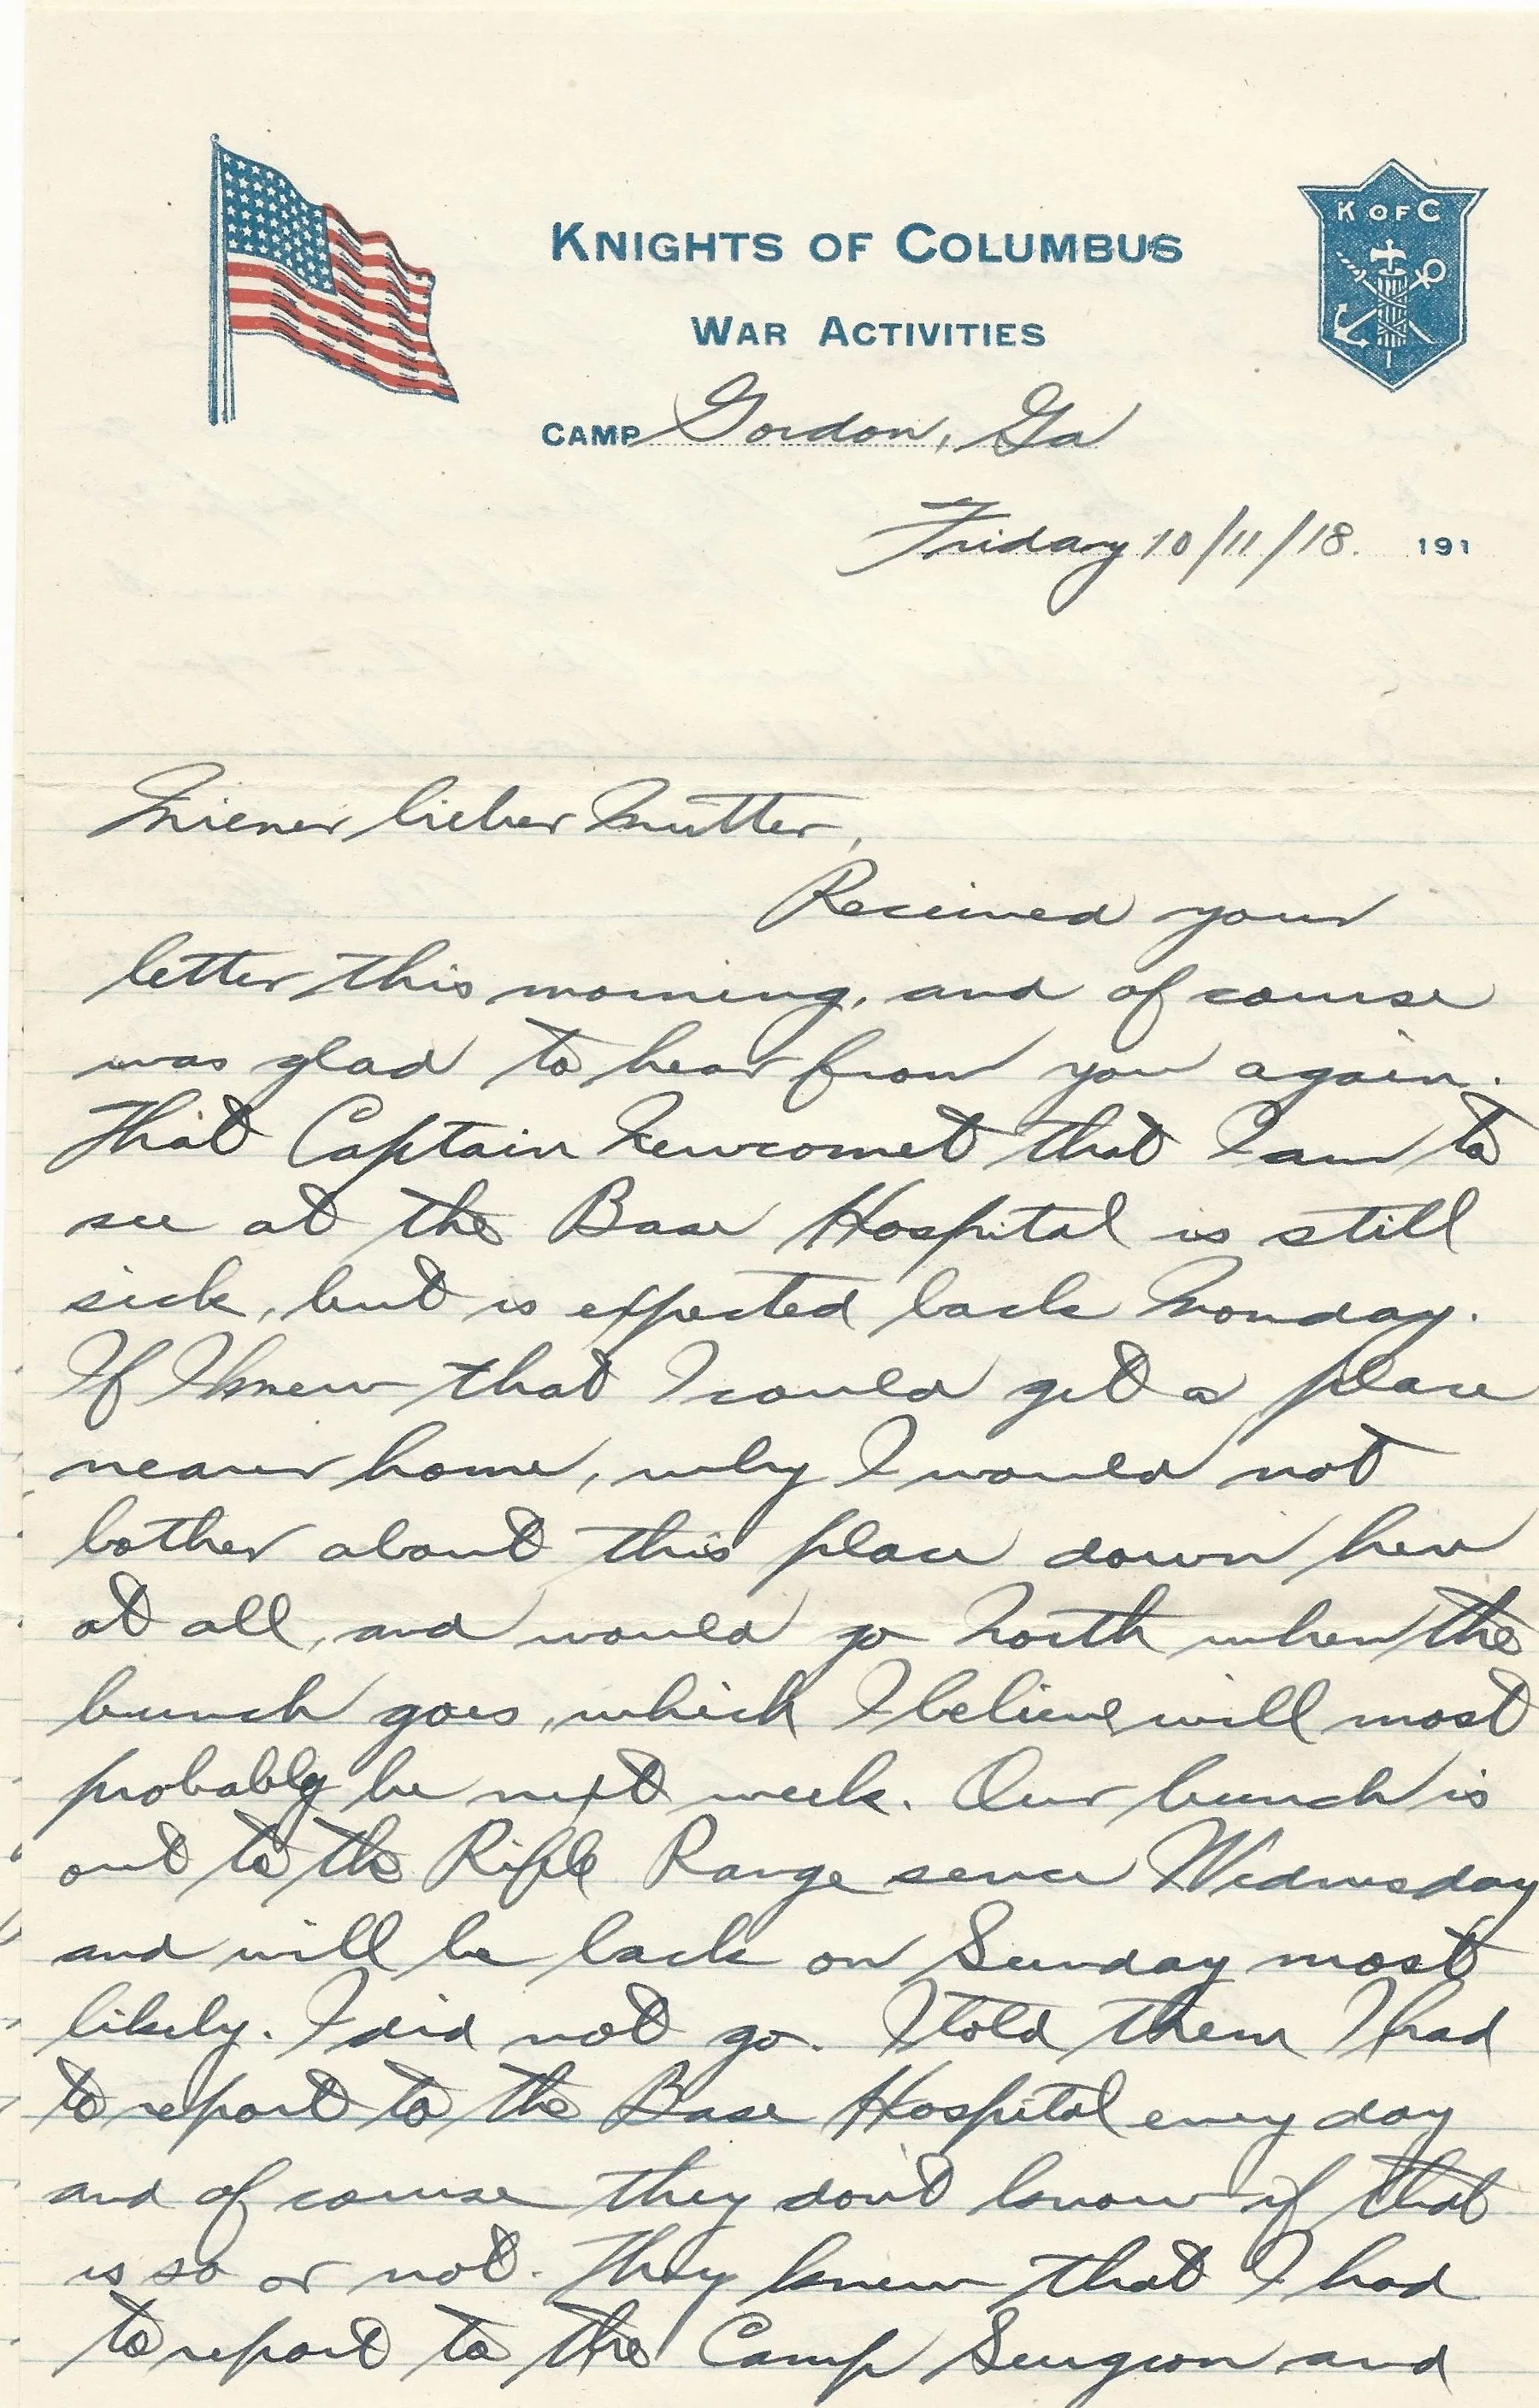 K OF C
KNIGHTS OF COLUMBUS
WAR ACTIVITIES
CAMP Gordon, Ga
Friday 10/11/18. 191
Miener lieber Mutter,
Received your
letter this morning, and of course
was glad to hear from you again.
That Captain Newcomet that I am to
see at the Base Hospital is still
sick, but is expected back Monday.
If I knew that I could get a place
nearer home, why I would not
bother about this place down here
at all, and would go North when the
bunch goes, which I believe will most
probably be next week. Our bunch is
out to the Rifle Range sence Wednesday
and will be back on Sunday most
likely. I did not go. I told them I had
to report to the Base Hospital every day
and of course they don't know if that
is so or not. They knew that I had
to report to the Camp Surgeon and